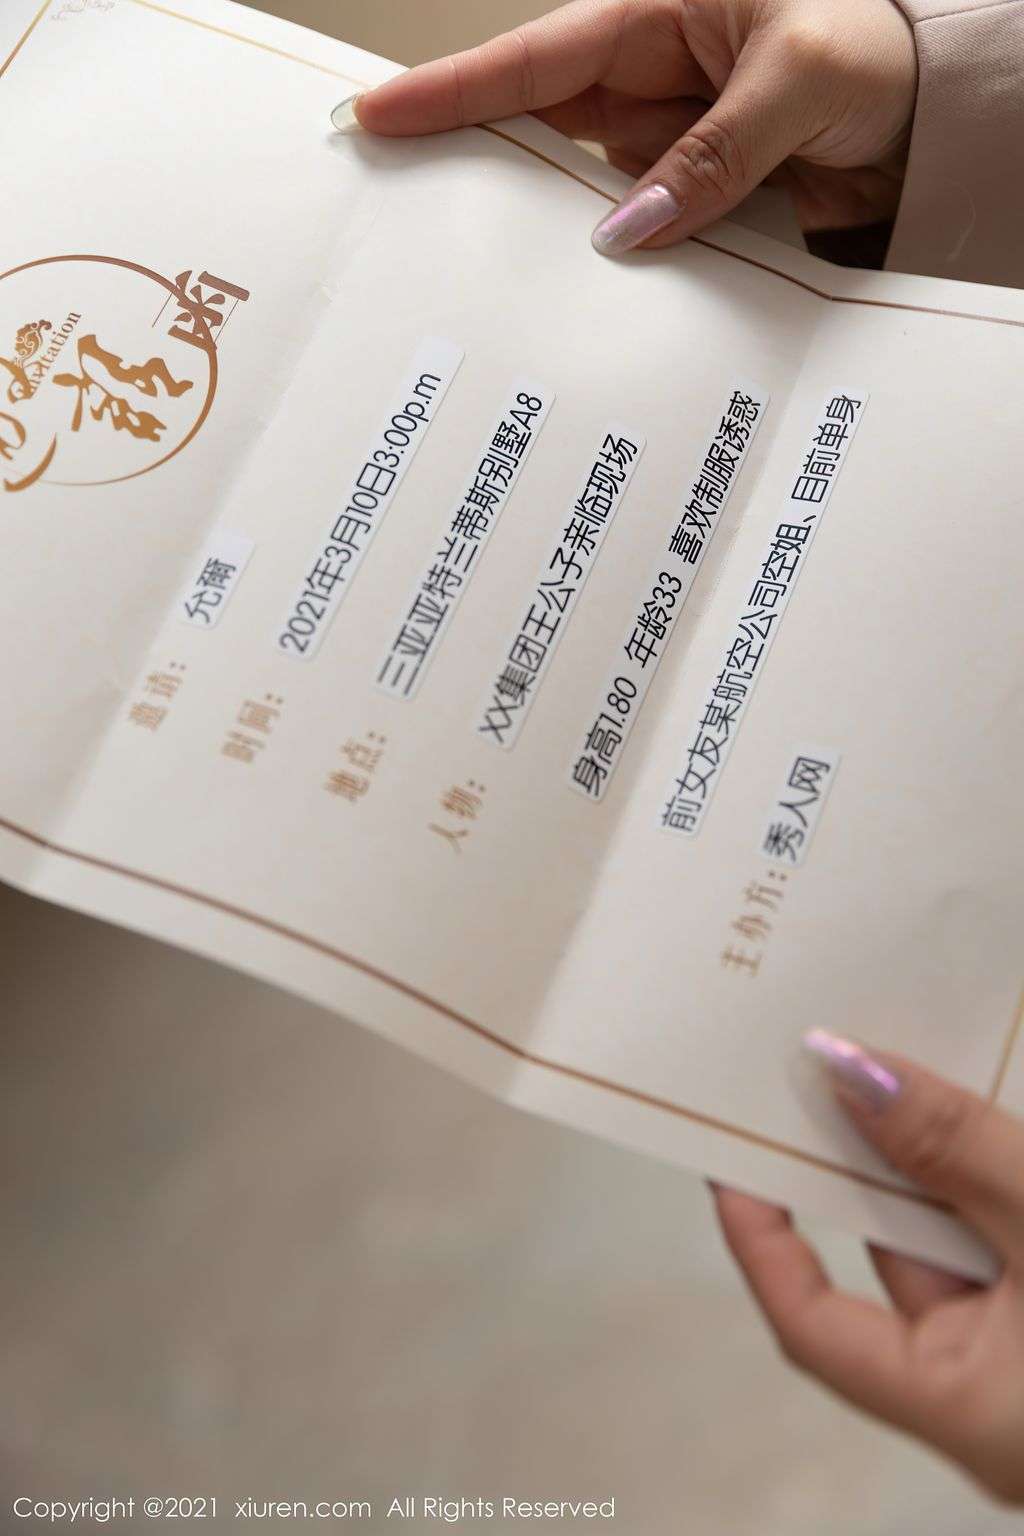 Invitation
請
函
邀请：允爾
时间：2021年3月10日3:00p.m
地点：三亚亚特兰蒂斯别墅A8
人物：XX集团王公子亲临现场
身高1.80 年龄33 喜欢制服诱惑
前女友某航空公司空姐、目前单身
主办方：秀人网
Copyright @2021 xiuren.com All Rights Reserved